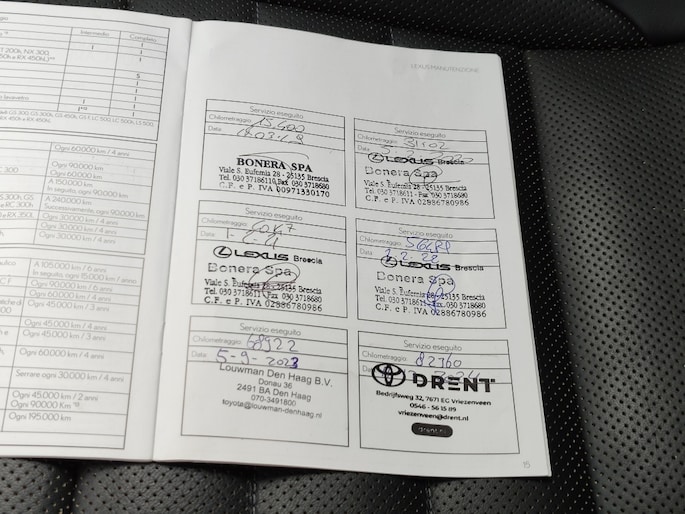 Intermedio Completo
1 1
1
5
1
1
1
Ogni 60.000 km / 4 anni
Ogni 90.000 km
Ogni 60.000 km
A 150.000 km
In seguito, ogni 90.000 km
A 240.000 km
Successivamente, ogni 90.000 km
Ogni 30.000 km / 4 anni
Ogni 30.000 km / 4 anni
Ogni 30.000 km / 4 anni
A 105.000 km / 6 anni
In seguito, ogni 15.000 km / anno
Ogni 90.000 km / 6 anni
Ogni 60.000 km / 4 anni
Ogni 45.000 km / 3 anni
Ogni 45.000 km / 4 anni
Ogni 45.000 km / 3 anni
Ogni 60.000 km / 4 anni
Serrare ogni 30.000 km / 4 anni
Ogni 45.000 km / 2 anni
Ogni 90.000 Km
Ogni 195.000 km
LEXUS MANUTENZIONE
Servizio eseguito
Chilometraggio 15.400
Data
BONERA SPA
Viale S. Eufemia 28 - 25135 Brescia
Tel. 030 3718611 Fax 030 3718680
C.F. e P. IVA 00971330170
Servizio eseguito
Chilometraggio 31.02
Data
LEXUS Brescia
Bonera Spa
Viale S. Eufemia 28 - 25135 Brescia
Tel. 030 3718611 - Fax 030 3718680
C.F. e P. IVA 02886780986
Servizio eseguito
Chilometraggio
Data
LEXUS Brescia
Bonera Spa
Viale S. Eufemia 28 - 25135 Brescia
Tel. 030 3718611 Fax 030 3718680
C.F. e P. IVA 02886780986
Servizio eseguito
Chilometraggio
Data
LEXUS Brescia
Bonera Spa
Viale S. Eufemia 28 - 25135 Brescia
Tel. 030 3718611 Fax 030 3718680
C.F. e P. IVA 02886780986
Servizio eseguito
Chilometraggio 68922
Data 5-9-2023
Louwman Den Haag B.V.
Donau 36
2491 BA Den Haag
070-3491800
toyota@louwman-denhaag.nl
Servizio eseguito
Chilometraggio 82760
Data
DRENT
Bedrijfsweg 32, 7671 EG Vriezenveen
0546 - 56 15 89
vriezenveen@drent.nl
drent.nl
15